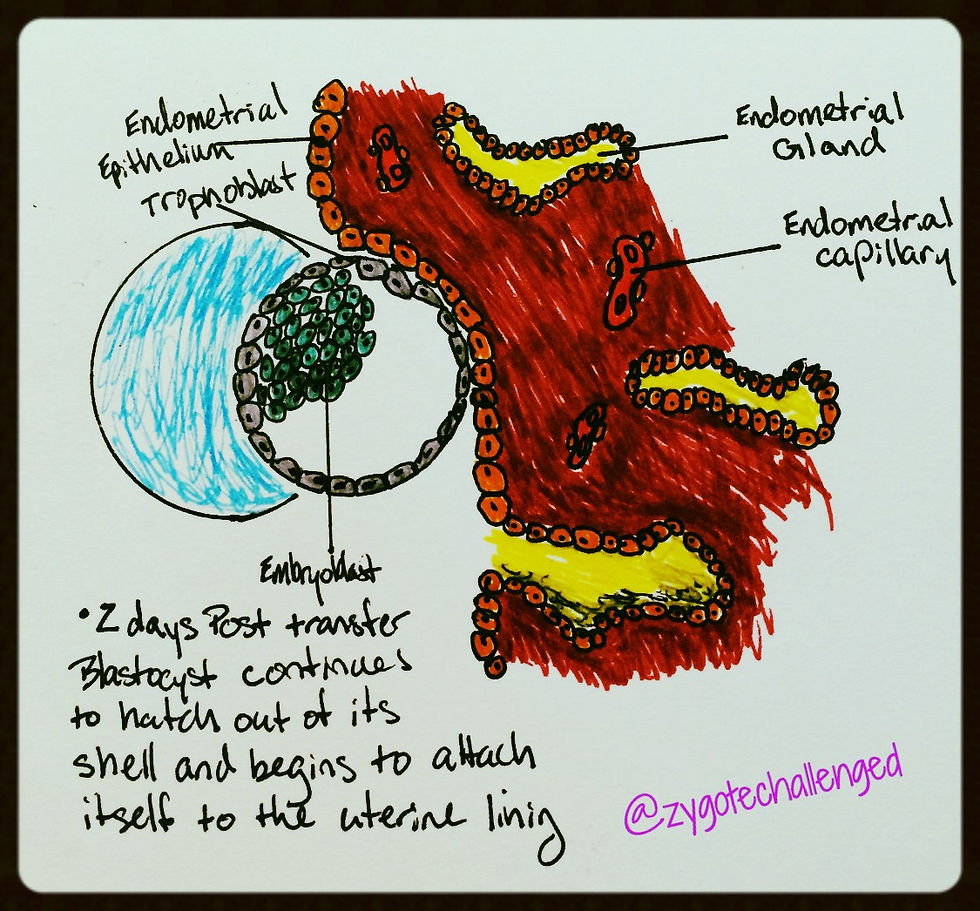 Endometrial
Epithelium
Trophoblast
Endometrial
Gland
Endometrial
capillary
Embryoblast
• 2 days Post transfer
Blastocyst continues
to hatch out of its
shell and begins to attach
itself to the uterine linig
@zygotechallenged